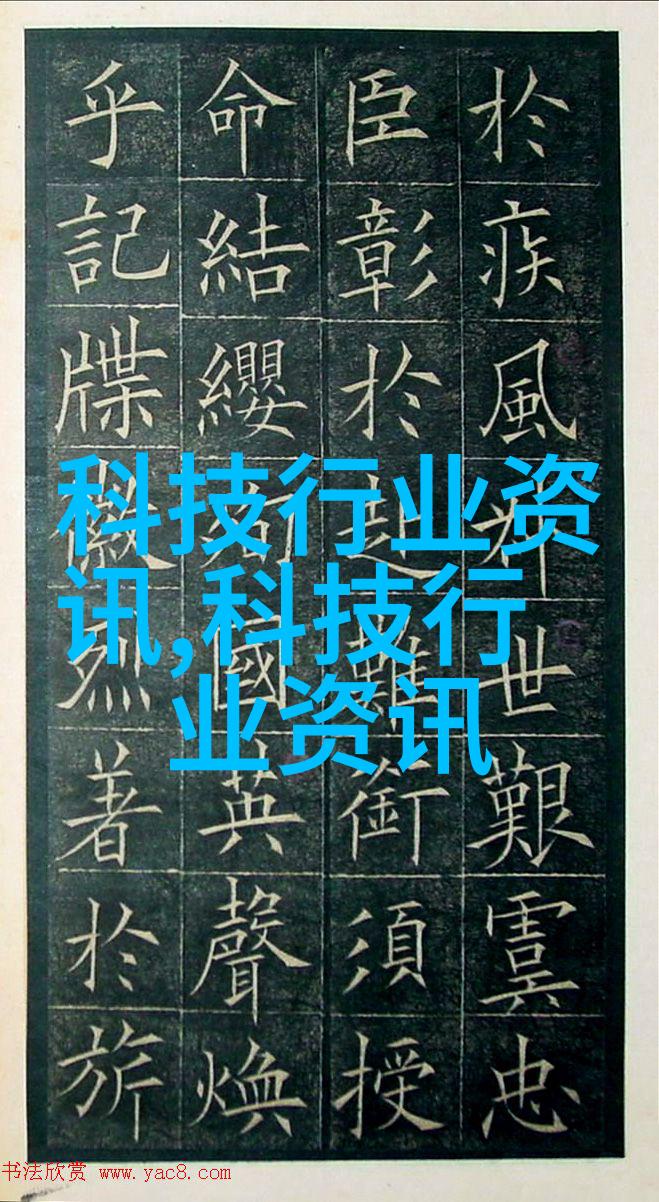 於疾風世艱虞忠
臣彰於赴難銜須授
命結纓國英聲煥
乎記牒徽烈著於旂
科技行业资
讯,科技行
业资讯
书法欣赏 www.yac8.com